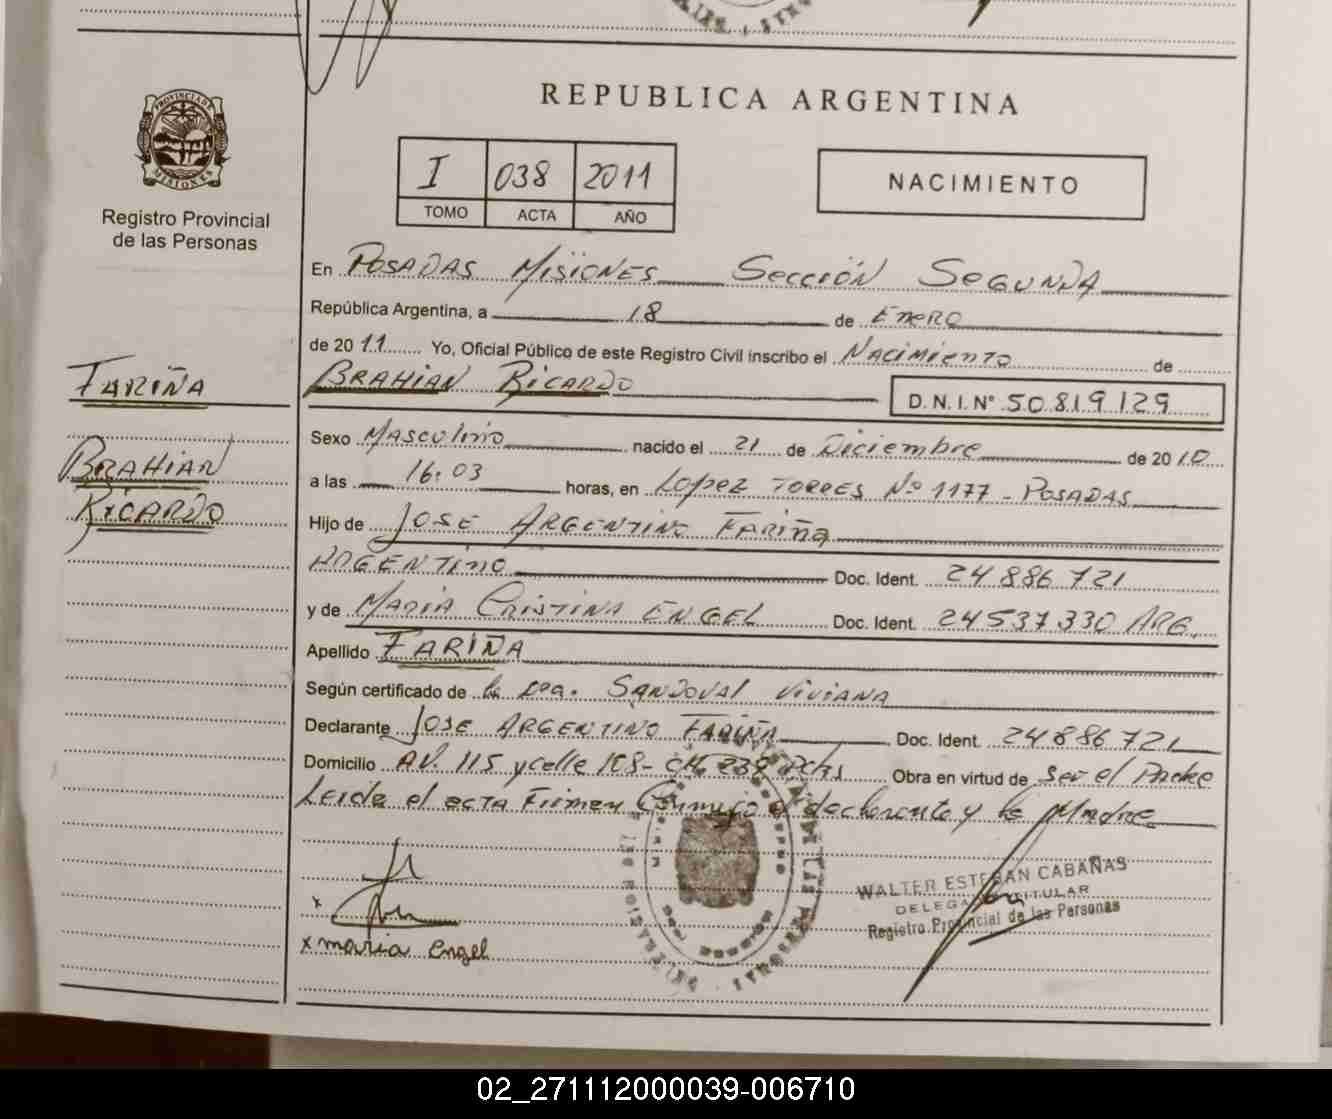 PROVINCIA DE
MISIONES
Registro Provincial
de las Personas
REPUBLICA ARGENTINA
I 038 2011
TOMO ACTA AÑO
NACIMIENTO
En POSADAS MISIONES SECCIÓN SEGUNDA
República Argentina, a 18 de ENERO
de 2011 Yo, Oficial Público de este Registro Civil inscribo el NACIMIENTO de
BRAHIAN RICARDO D.N.I.Nº 50.819.129
FARIÑA
BRAHIAN
RICARDO
Sexo MASCULINO nacido el 21 de Diciembre de 2010
a las 16:03 horas, en LOPEZ TORRES Nº 1177 - POSADAS
Hijo de JOSE ARGENTINO FARIÑA
ARGENTINO Doc. Ident. 24 886 721
y de MARIA CRISTINA ENGEL Doc. Ident. 24 537 330 ARG.
Apellido FARIÑA
Según certificado de la SANDOVAL VIVIANA
Declarante JOSE ARGENTINO FARIÑA Doc. Ident. 24 886 721
Domicilio AV. 115 y calle 108 - CH. 238 Obra en virtud de ser el Padre
Leida el acta Firman Conmigo el declarante y la Madre
WALTER ESTEBAN CABAÑAS
DELEGADO TITULAR
Registro Provincial de las Personas
x
x maria engel
02_271112000039-006710